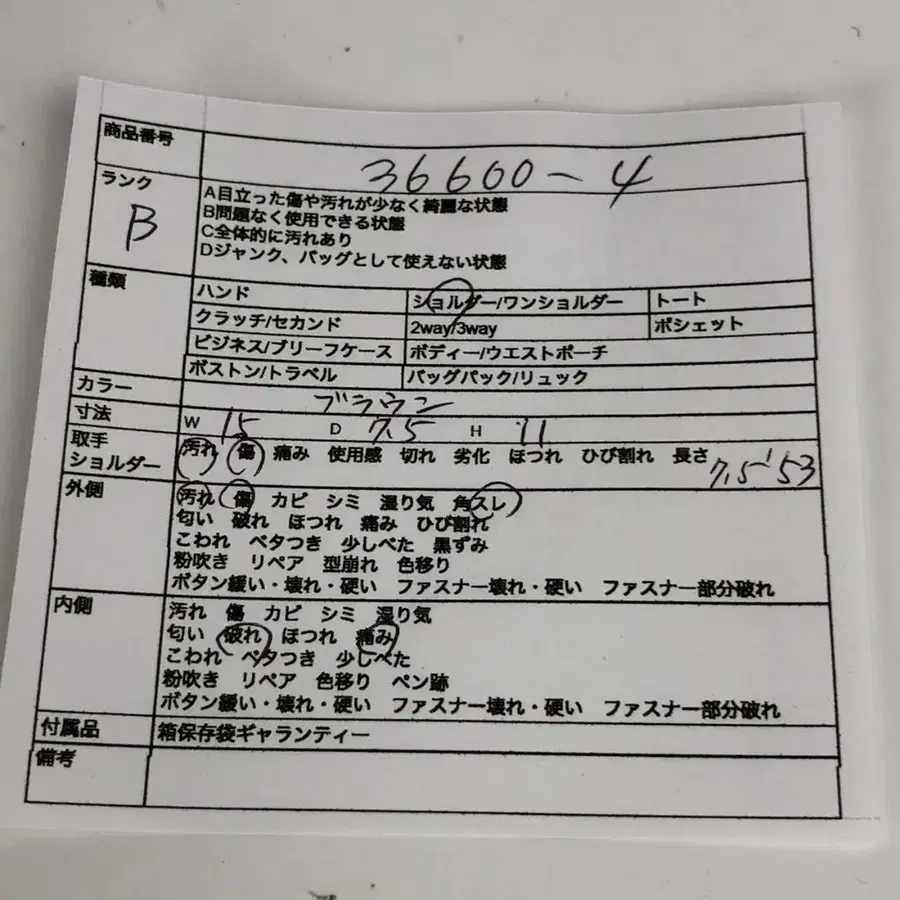 商品番号 36600-4
ランク B
A目立った傷や汚れが少なく綺麗な状態
B問題なく使用できる状態
C全体的に汚れあり
Dジャンク、バッグとして使えない状態
種類 ハンド ショルダー/ワンショルダー トート
クラッチ/セカンド 2way/3way ポシェット
ビジネス/ブリーフケース ボディー/ウエストポーチ
ボストン/トラベル バッグパック/リュック
カラー ブラウン
寸法 W 15 D 7.5 H 11
取手 ショルダー 汚れ 傷 痛み 使用感 切れ 劣化 ほつれ ひび割れ 長さ 7.5 53
外側 汚れ 傷 カビ シミ 湿り気 角スレ
匂い 破れ ほつれ 痛み ひび割れ
こわれ ベタつき 少しべた 黒ずみ
粉吹き リペア 型崩れ 色移り
ボタン緩い・壊れ・硬い ファスナー壊れ・硬い ファスナー部分破れ
内側 汚れ 傷 カビ シミ 湿り気
匂い 破れ ほつれ 痛み
こわれ ベタつき 少しべた
粉吹き リペア 色移り ペン跡
ボタン緩い・壊れ・硬い ファスナー壊れ・硬い ファスナー部分破れ
付属品 箱保存袋ギャランティー
備考